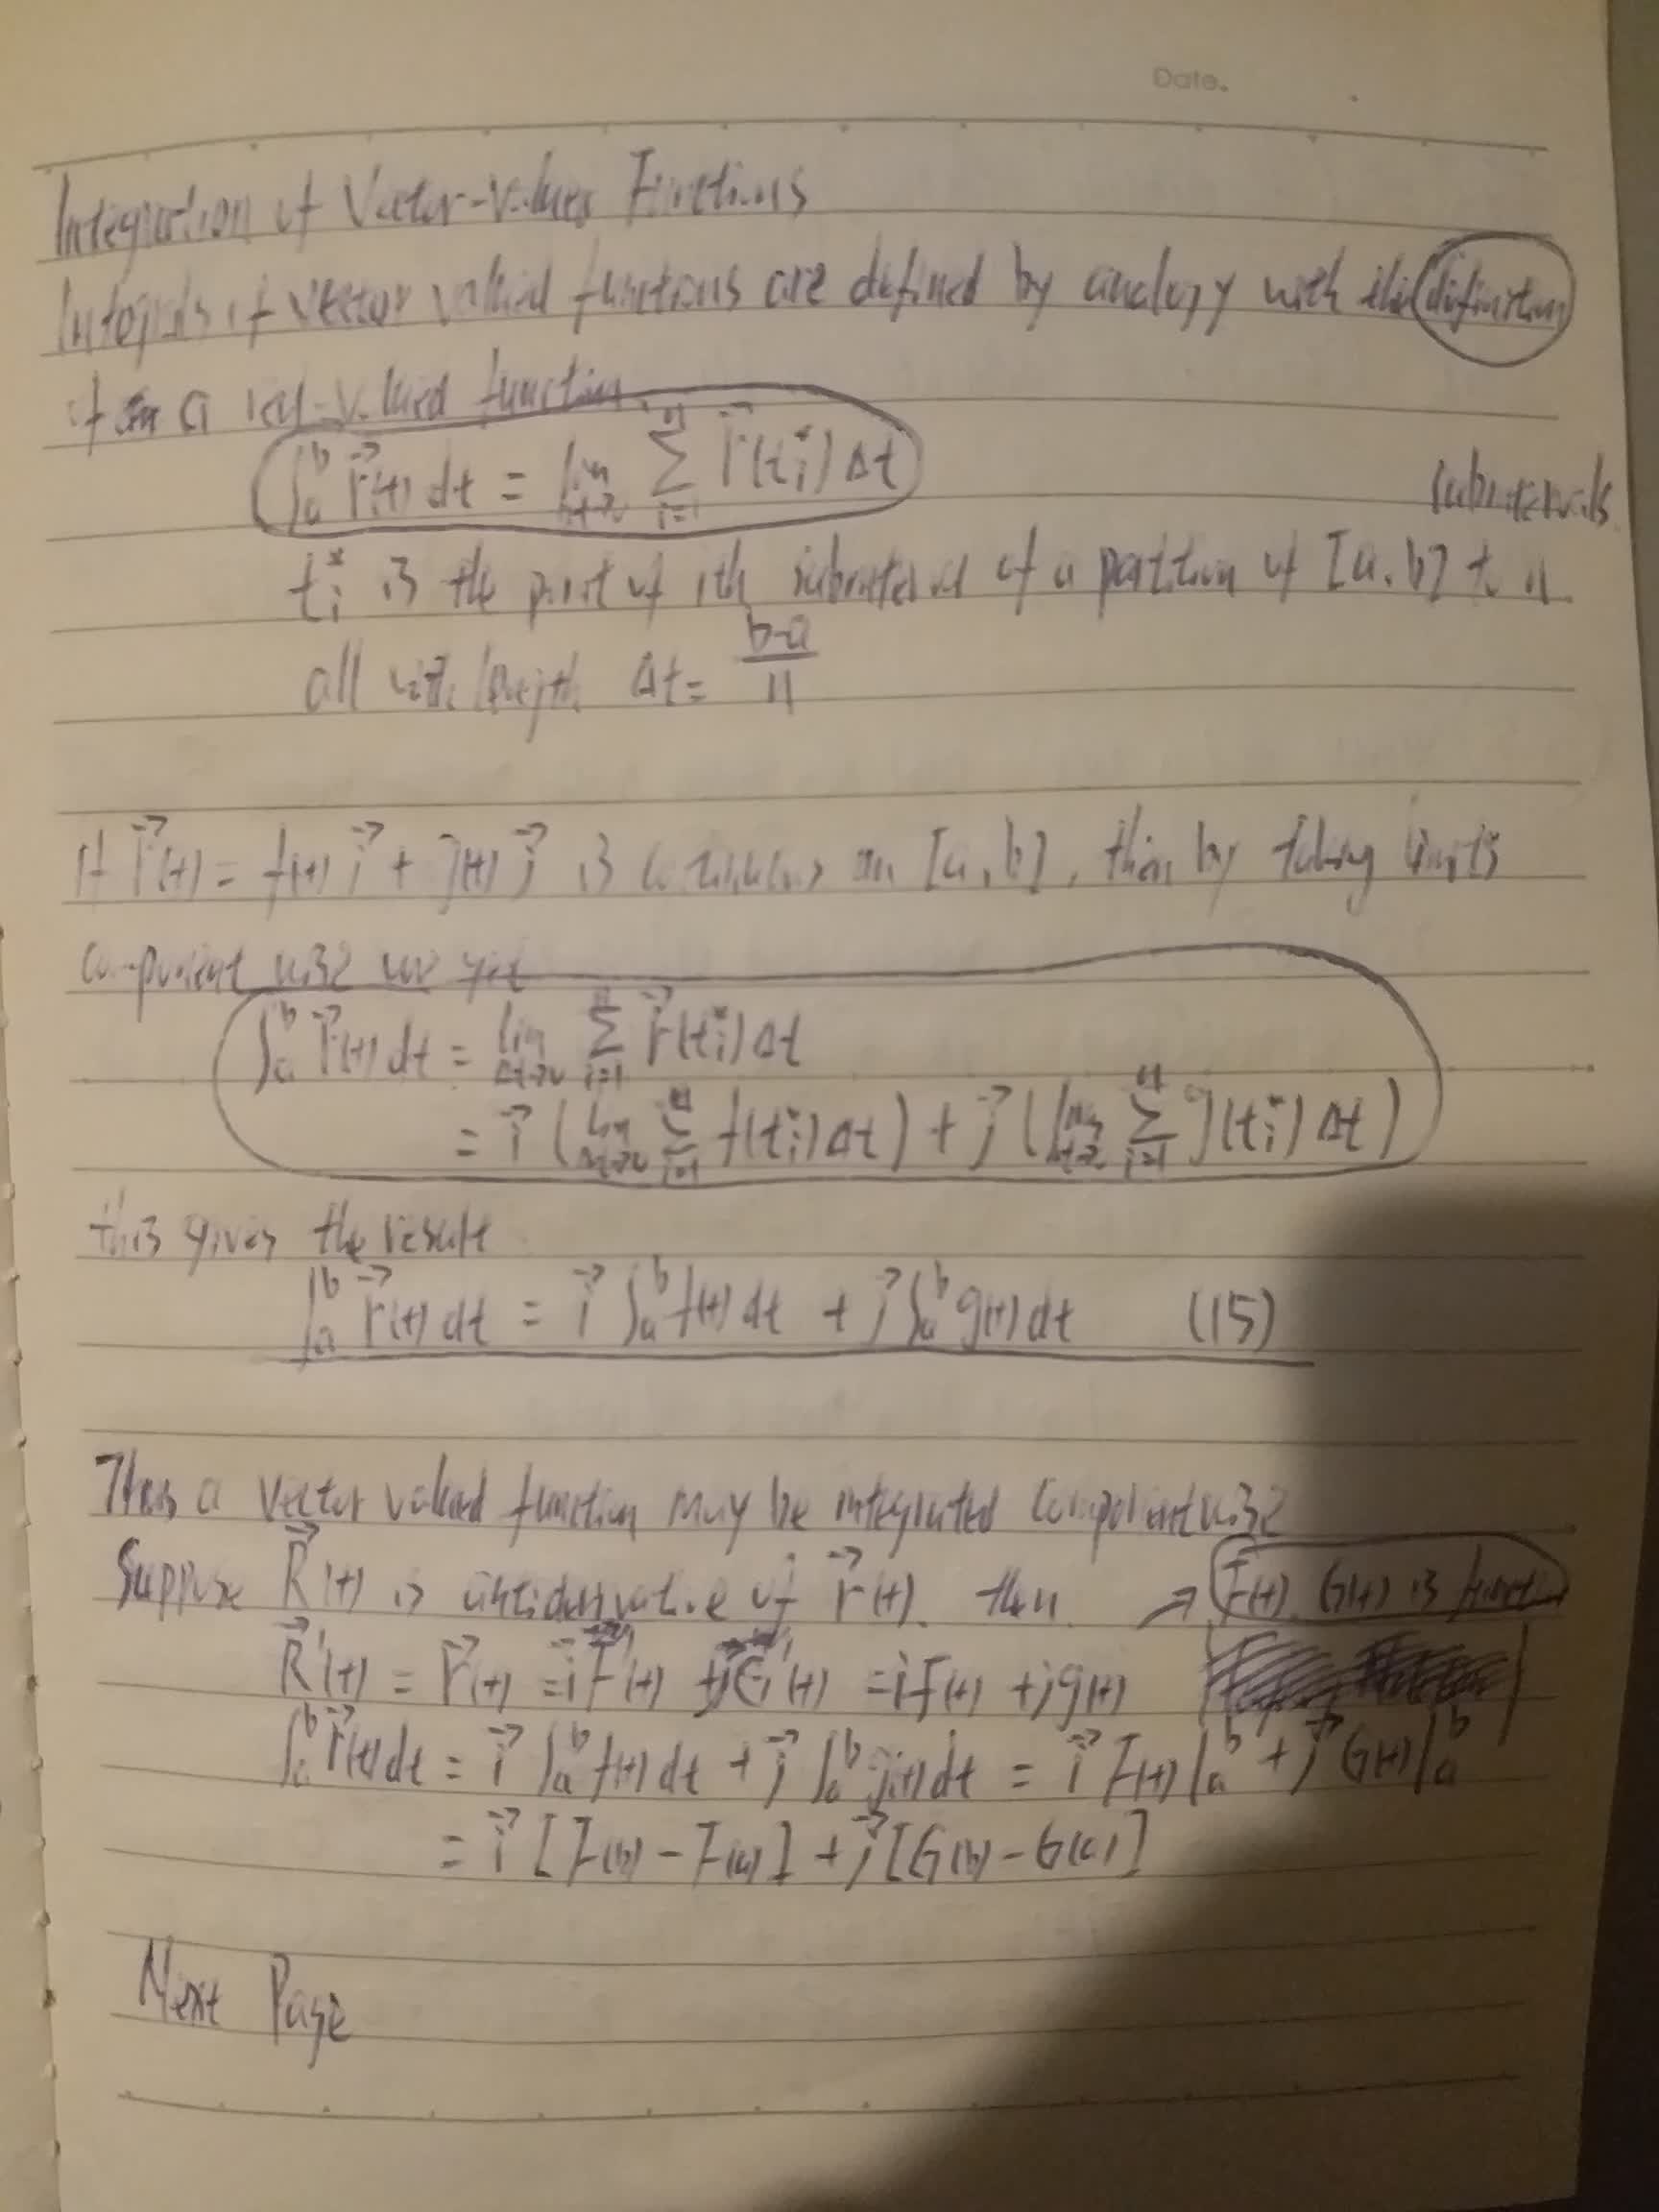 Date.
Integration of Vector-Values Functions
Integrals of vector valued functions are defined by analogy with the definition
of a real-valued function
∫ₐᵇ r⃗(t) dt = lim Δt→0 Σ i=1 n r⃗(tᵢ*) Δt
subintervals
tᵢ* is the point of ith subinterval of a partition of [a, b] to n
all with length Δt = (b-a)/n
If r⃗(t) = f(t) i⃗ + g(t) j⃗ is continuous on [a, b], then by taking limits
componentwise we get
∫ₐᵇ r⃗(t) dt = lim Δt→0 Σ i=1 n r⃗(tᵢ*) Δt
= i⃗ (lim Δt→0 Σ i=1 n f(tᵢ*) Δt) + j⃗ (lim Δt→0 Σ i=1 n g(tᵢ*) Δt)
this gives the result
∫ₐᵇ r⃗(t) dt = i⃗ ∫ₐᵇ f(t) dt + j⃗ ∫ₐᵇ g(t) dt (15)
Thus a vector valued function may be integrated componentwise
Suppose R⃗(t) is antiderivative of r⃗(t). then → F(t), G(t) is
R⃗'(t) = r⃗(t) = i⃗F'(t) + j⃗G'(t) = if(t) + jg(t)
∫ₐᵇ r⃗(t) dt = i⃗ ∫ₐᵇ f(t) dt + j⃗ ∫ₐᵇ g(t) dt = i⃗ F(t)|ₐᵇ + j⃗ G(t)|ₐᵇ
= i⃗ [F(b) - F(a)] + j⃗ [G(b) - G(a)]
Next Page